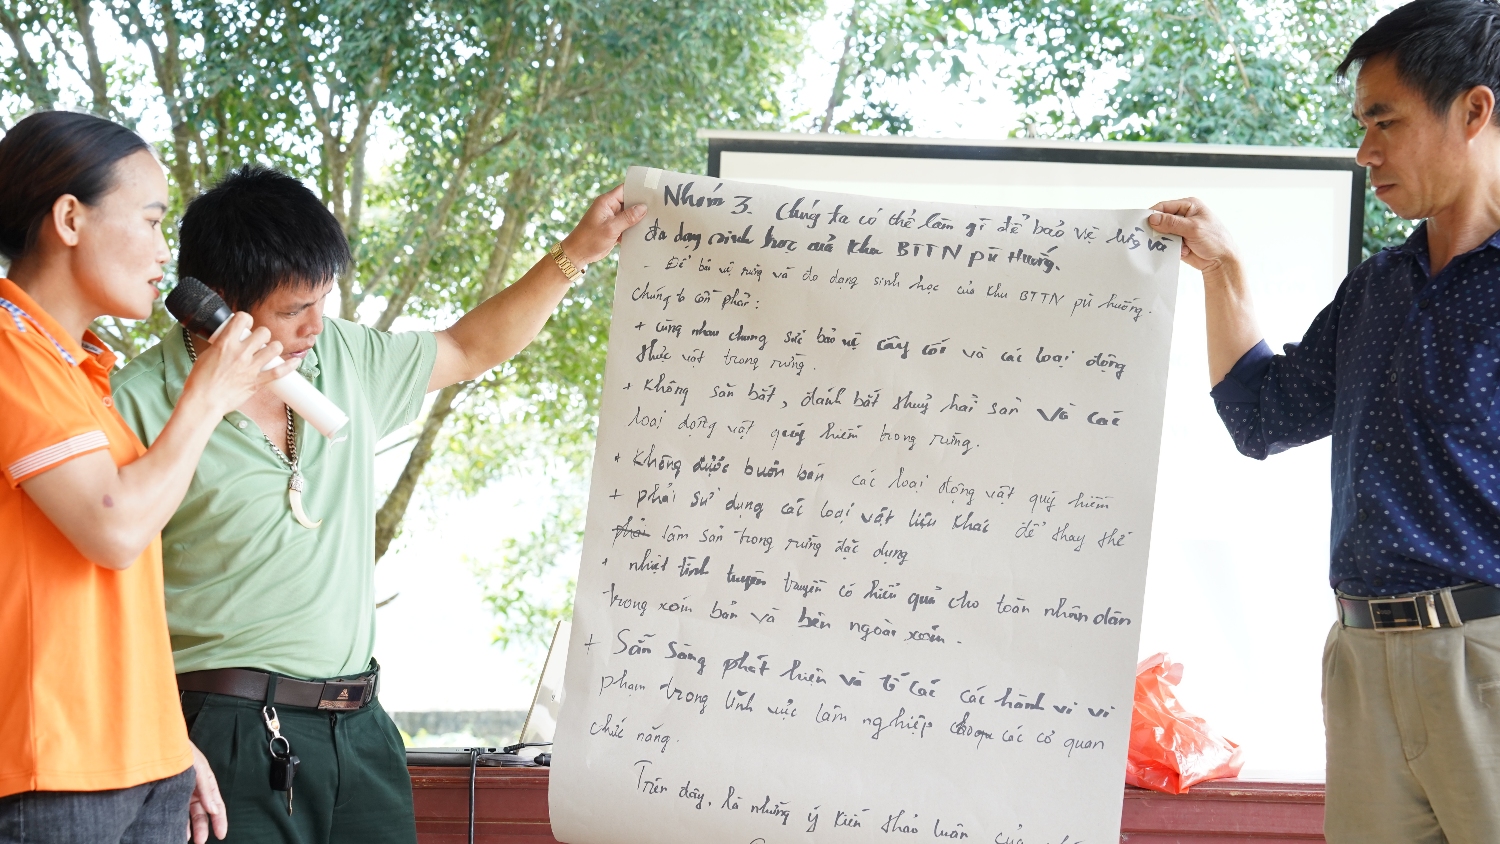 Nhóm 3. Chúng ta có thể làm gì để bảo vệ rừng và
đa dạng sinh học của khu BTTN Pù Huống.
- Để bảo vệ rừng và đa dạng sinh học của khu BTTN pù huống.
chúng ta cần phải:
+ cùng nhau chung sức bảo vệ cây cối và các loại động
thực vật trong rừng.
+ Không săn bắt, đánh bắt thuỷ hải sản và các
loại động vật quý hiếm trong rừng.
+ Không được buôn bán các loại động vật quý hiếm
+ phải sử dụng các loại vật liệu khác để thay thế
lâm sản trong rừng đặc dụng
+ nhiệt tình tuyên truyền có hiểu quả cho toàn nhân dân
trong xóm bản và bên ngoài xóm.
+ Sẵn sàng phát hiện và tố cáo các hành vi vi
phạm trong lĩnh vực lâm nghiệp cho các cơ quan
chức năng.
Trên đây, là những ý kiến thảo luân của